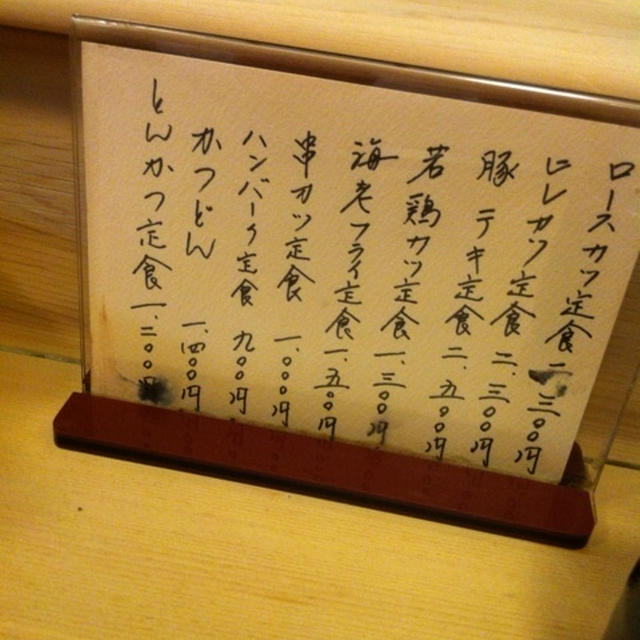 ロースカツ定食 二、三〇〇円
ヒレカツ定食 二、三〇〇円
豚テキ定食 二、五〇〇円
若鶏カツ定食 一、三〇〇円
海老フライ定食 一、五〇〇円
串カツ定食 一、〇〇〇円
ハンバーグ定食 九〇〇円
かつどん 一、四〇〇円
とんかつ定食 一、二〇〇円